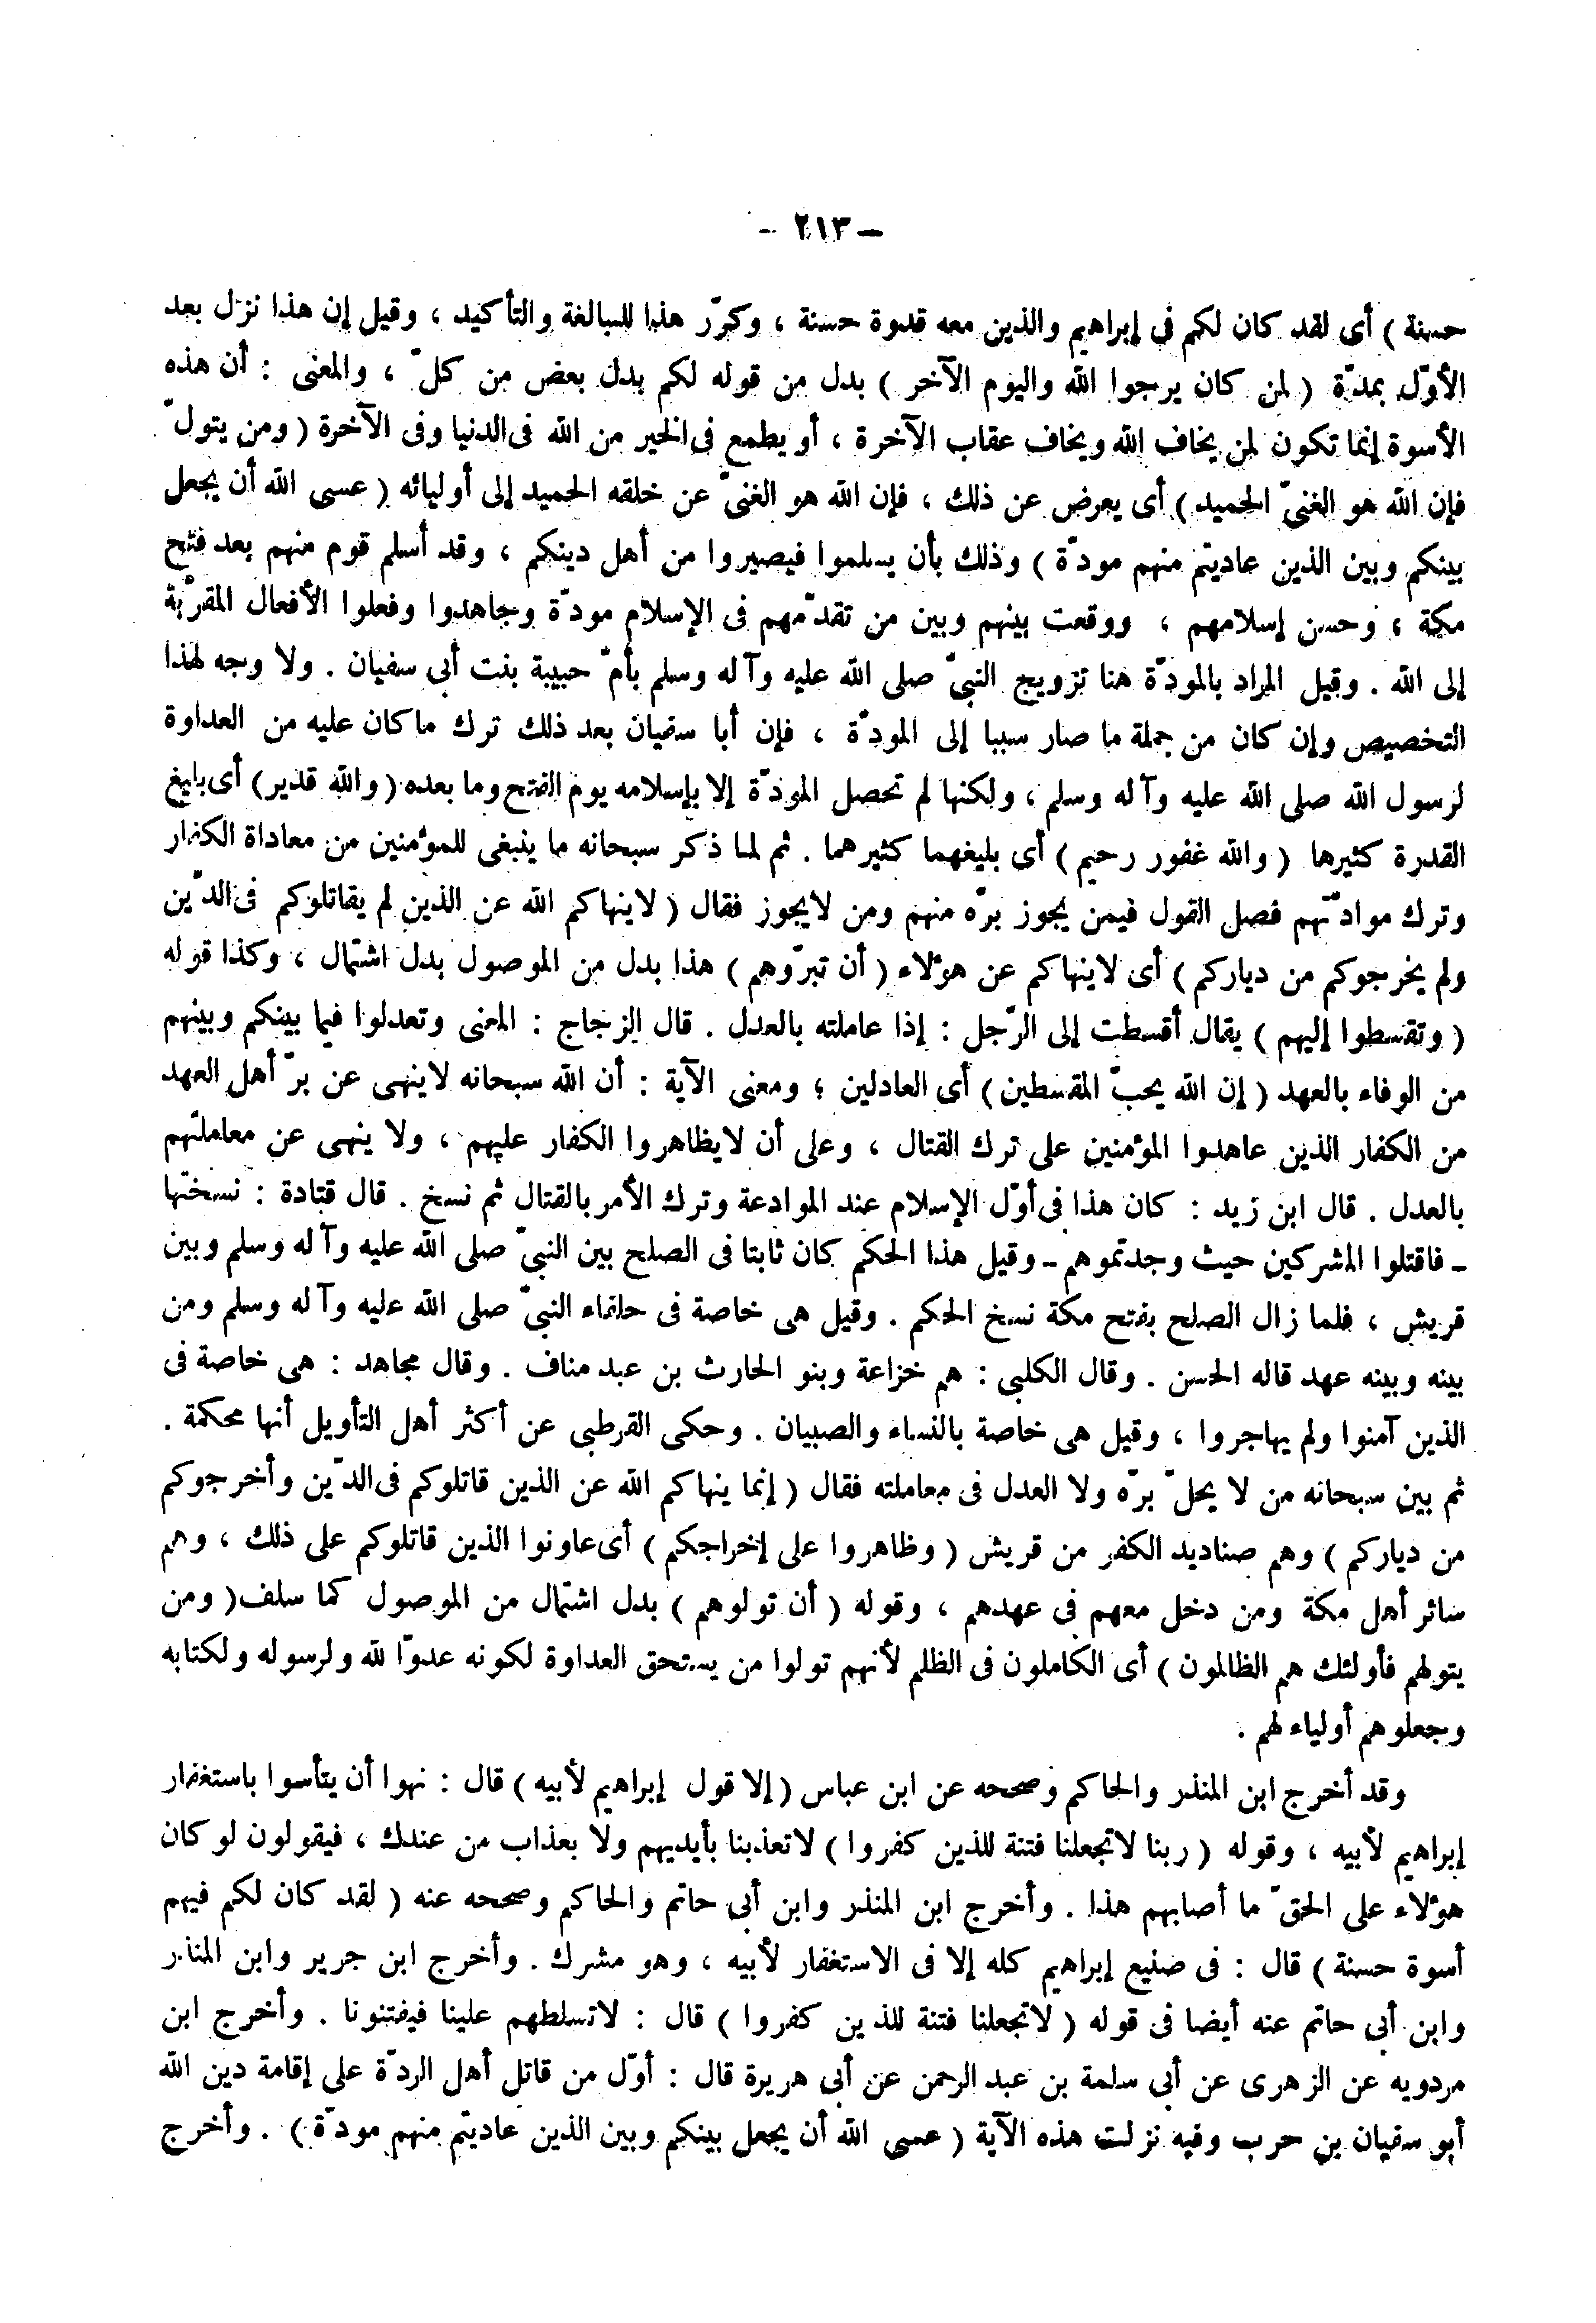 — ٢١٣ —
حسنة ) أى لقد كان لكم فى إبراهيم والذين معه قدوة حسنة ، وكرّر هذا للمبالغة والتأكيد ، وقيل إن هذا نزل بعد
الأوّل بمدّة ( لمن كان يرجوا الله واليوم الآخر ) بدل من قوله لكم بدل بعض من كلّ ، والمعنى : أن هذه
الأسوة إنما تكون لمن يخاف الله ويخاف عقاب الآخرة ، أو يطمع فى الخير من الله فى الدنيا وفى الآخرة ( ومن يتولّ
فإن الله هو الغنىّ الحميد ) أى يعرض عن ذلك ، فإن الله هو الغنىّ عن خلقه الحميد إلى أوليائه ( عسى الله أن يجعل
بينكم وبين الذين عاديتم منهم مودّة ) وذلك بأن يسلموا فيصيروا من أهل دينكم ، وقد أسلم قوم منهم بعد فتح
مكة ، وحسن إسلامهم ، ووقعت بينهم وبين من تقدّمهم فى الإسلام مودّة وجاهدوا وفعلوا الأفعال المقرّبة
إلى الله . وقيل المراد بالمودّة هنا تزويج النبىّ صلى الله عليه وآله وسلم بأمّ حبيبة بنت أبى سفيان . ولا وجه لهذا
التخصيص وإن كان من جملة ما صار سببا إلى المودّة ، فإن أبا سفيان بعد ذلك ترك ما كان عليه من العداوة
لرسول الله صلى الله عليه وآله وسلم ، ولكنها لم تحصل المودّة إلا بإسلامه يوم الفتح وما بعده ( والله قدير ) أى بليغ
القدرة كثيرها ( والله غفور رحيم ) أى بليغهما كثيرهما . ثم لما ذكر سبحانه ما ينبغى للمؤمنين من معاداة الكفار
وترك موادّتهم فصل القول فيمن يجوز برّه منهم ومن لايجوز فقال ( لاينهاكم الله عن الذين لم يقاتلوكم فى الدّين
ولم يخرجوكم من دياركم ) أى لاينهاكم عن هؤلاء ( أن تبرّوهم ) هذا بدل من الموصول بدل اشتمال ، وكذا قوله
( وتقسطوا إليهم ) يقال أقسطت إلى الرّجل : إذا عاملته بالعدل . قال الزجاج : المعنى وتعدلوا فيما بينكم وبينهم
من الوفاء بالعهد ( إن الله يحبّ المقسطين ) أى العادلين ؛ ومعنى الآية : أن الله سبحانه لاينهى عن برّ أهل العهد
من الكفار الذين عاهدوا المؤمنين على ترك القتال ، وعلى أن لايظاهروا الكفار عليهم ، ولا ينهى عن معاملتهم
بالعدل . قال ابن زيد : كان هذا فى أوّل الإسلام عند الموادعة وترك الأمر بالقتال ثم نسخ . قال قتادة : نسختها
ـ فاقتلوا المشركين حيث وجدتموهم ـ وقيل هذا الحكم كان ثابتا فى الصلح بين النبىّ صلى الله عليه وآله وسلم وبين
قريش ، فلما زال الصلح بفتح مكة نسخ الحكم . وقيل هى خاصة فى حلفاء النبىّ صلى الله عليه وآله وسلم ومن
بينه وبينه عهد قاله الحسن . وقال الكلبى : هم خزاعة وبنو الحارث بن عبد مناف . وقال مجاهد : هى خاصة فى
الذين آمنوا ولم يهاجروا ، وقيل هى خاصة بالنساء والصبيان . وحكى القرطبى عن أكثر أهل التأويل أنها محكمة .
ثم بين سبحانه من لا يحلّ برّه ولا العدل فى معاملته فقال ( إنما ينهاكم الله عن الذين قاتلوكم فى الدّين وأخرجوكم
من دياركم ) وهم صناديد الكفر من قريش ( وظاهروا على إخراجكم ) أى عاونوا الذين قاتلوكم على ذلك ، وهم
سائر أهل مكة ومن دخل معهم فى عهدهم ، وقوله ( أن تولوهم ) بدل اشتمال من الموصول كما سلف ( ومن
يتولهم فأولئك هم الظالمون ) أى الكاملون فى الظلم لأنهم تولوا من يستحق العداوة لكونه عدوّا لله ولرسوله ولكتابه
وجعلوهم أولياء لهم .
وقد أخرج ابن المنذر والحاكم وصححه عن ابن عباس ( إلا قول إبراهيم لأبيه ) قال : نهوا أن يتأسوا باستغفار
إبراهيم لأبيه ، وقوله ( ربنا لاتجعلنا فتنة للذين كفروا ) لاتعذبنا بأيديهم ولا بعذاب من عندك ، فيقولون لو كان
هؤلاء على الحقّ ما أصابهم هذا . وأخرج ابن المنذر وابن أبى حاتم والحاكم وصححه عنه ( لقد كان لكم فيهم
أسوة حسنة ) قال : فى صنيع إبراهيم كله إلا فى الاستغفار لأبيه ، وهو مشرك . وأخرج ابن جرير وابن المنذر
وابن أبى حاتم عنه أيضا فى قوله ( لاتجعلنا فتنة للذين كفروا ) قال : لاتسلطهم علينا فيفتنونا . وأخرج ابن
مردويه عن الزهرى عن أبى سلمة بن عبد الرحمن عن أبى هريرة قال : أوّل من قاتل أهل الردّة على إقامة دين الله
أبو سفيان بن حرب وفيه نزلت هذه الآية ( عسى الله أن يجعل بينكم وبين الذين عاديتم منهم مودّة ) . وأخرج